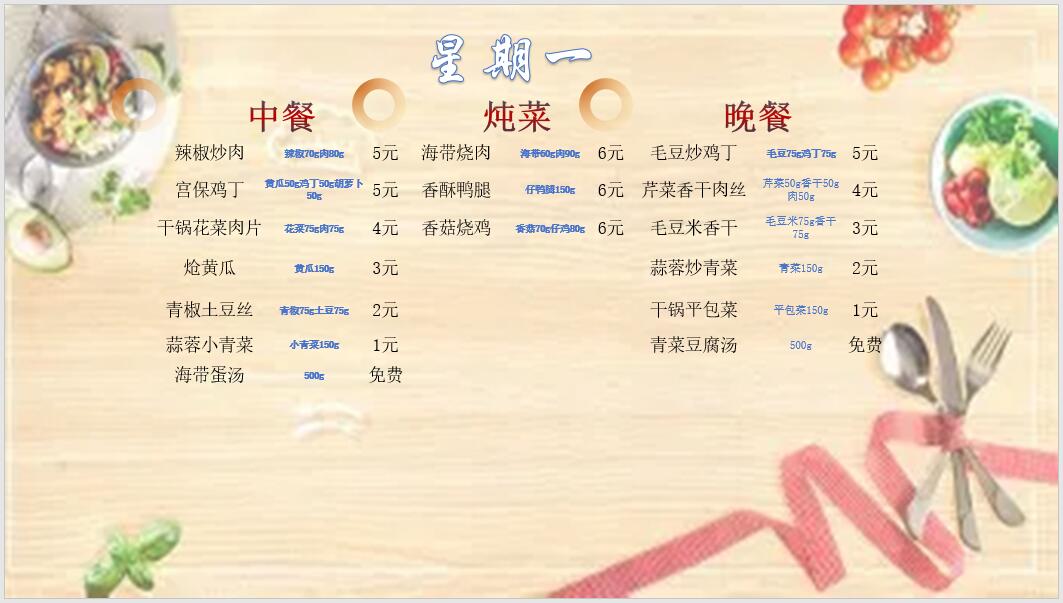 星期一
中餐 炖菜 晚餐
辣椒炒肉 辣椒70g肉80g 5元 海带烧肉 海带60g肉90g 6元 毛豆炒鸡丁 毛豆75g鸡丁75g 5元
宫保鸡丁 黄瓜50g鸡丁50g胡萝卜50g 5元 香酥鸭腿 仔鸭腿150g 6元 芹菜香干肉丝 芹菜50g香干50g肉50g 4元
干锅花菜肉片 花菜75g肉75g 4元 香菇烧鸡 香菇70g仔鸡80g 6元 毛豆米香干 毛豆米75g香干75g 3元
炝黄瓜 黄瓜150g 3元 蒜蓉炒青菜 青菜150g 2元
青椒土豆丝 青椒75g土豆75g 2元 干锅平包菜 平包菜150g 1元
蒜蓉小青菜 小青菜150g 1元 青菜豆腐汤 500g 免费
海带蛋汤 500g 免费